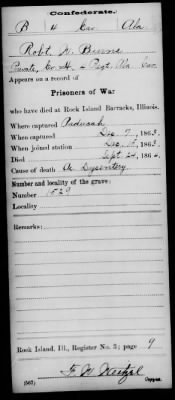 Confederate.
B 4 Cav. Ala.
Robt. W. Burns
Private, Co. H, 4 Regt. Ala. Cav.
Appears on a record of
Prisoners of War
who have died at Rock Island Barracks, Illinois.
Where captured Paducah
When captured Dec. 7, 1863.
When joined station Dec. 1863.
Died Sept 24, 1864.
Cause of death Dysentery
Number and locality of the grave:
Number 1529
Locality
Remarks:
Rock Island, Ill., Register No. 3; page 9
(567) Copyist.